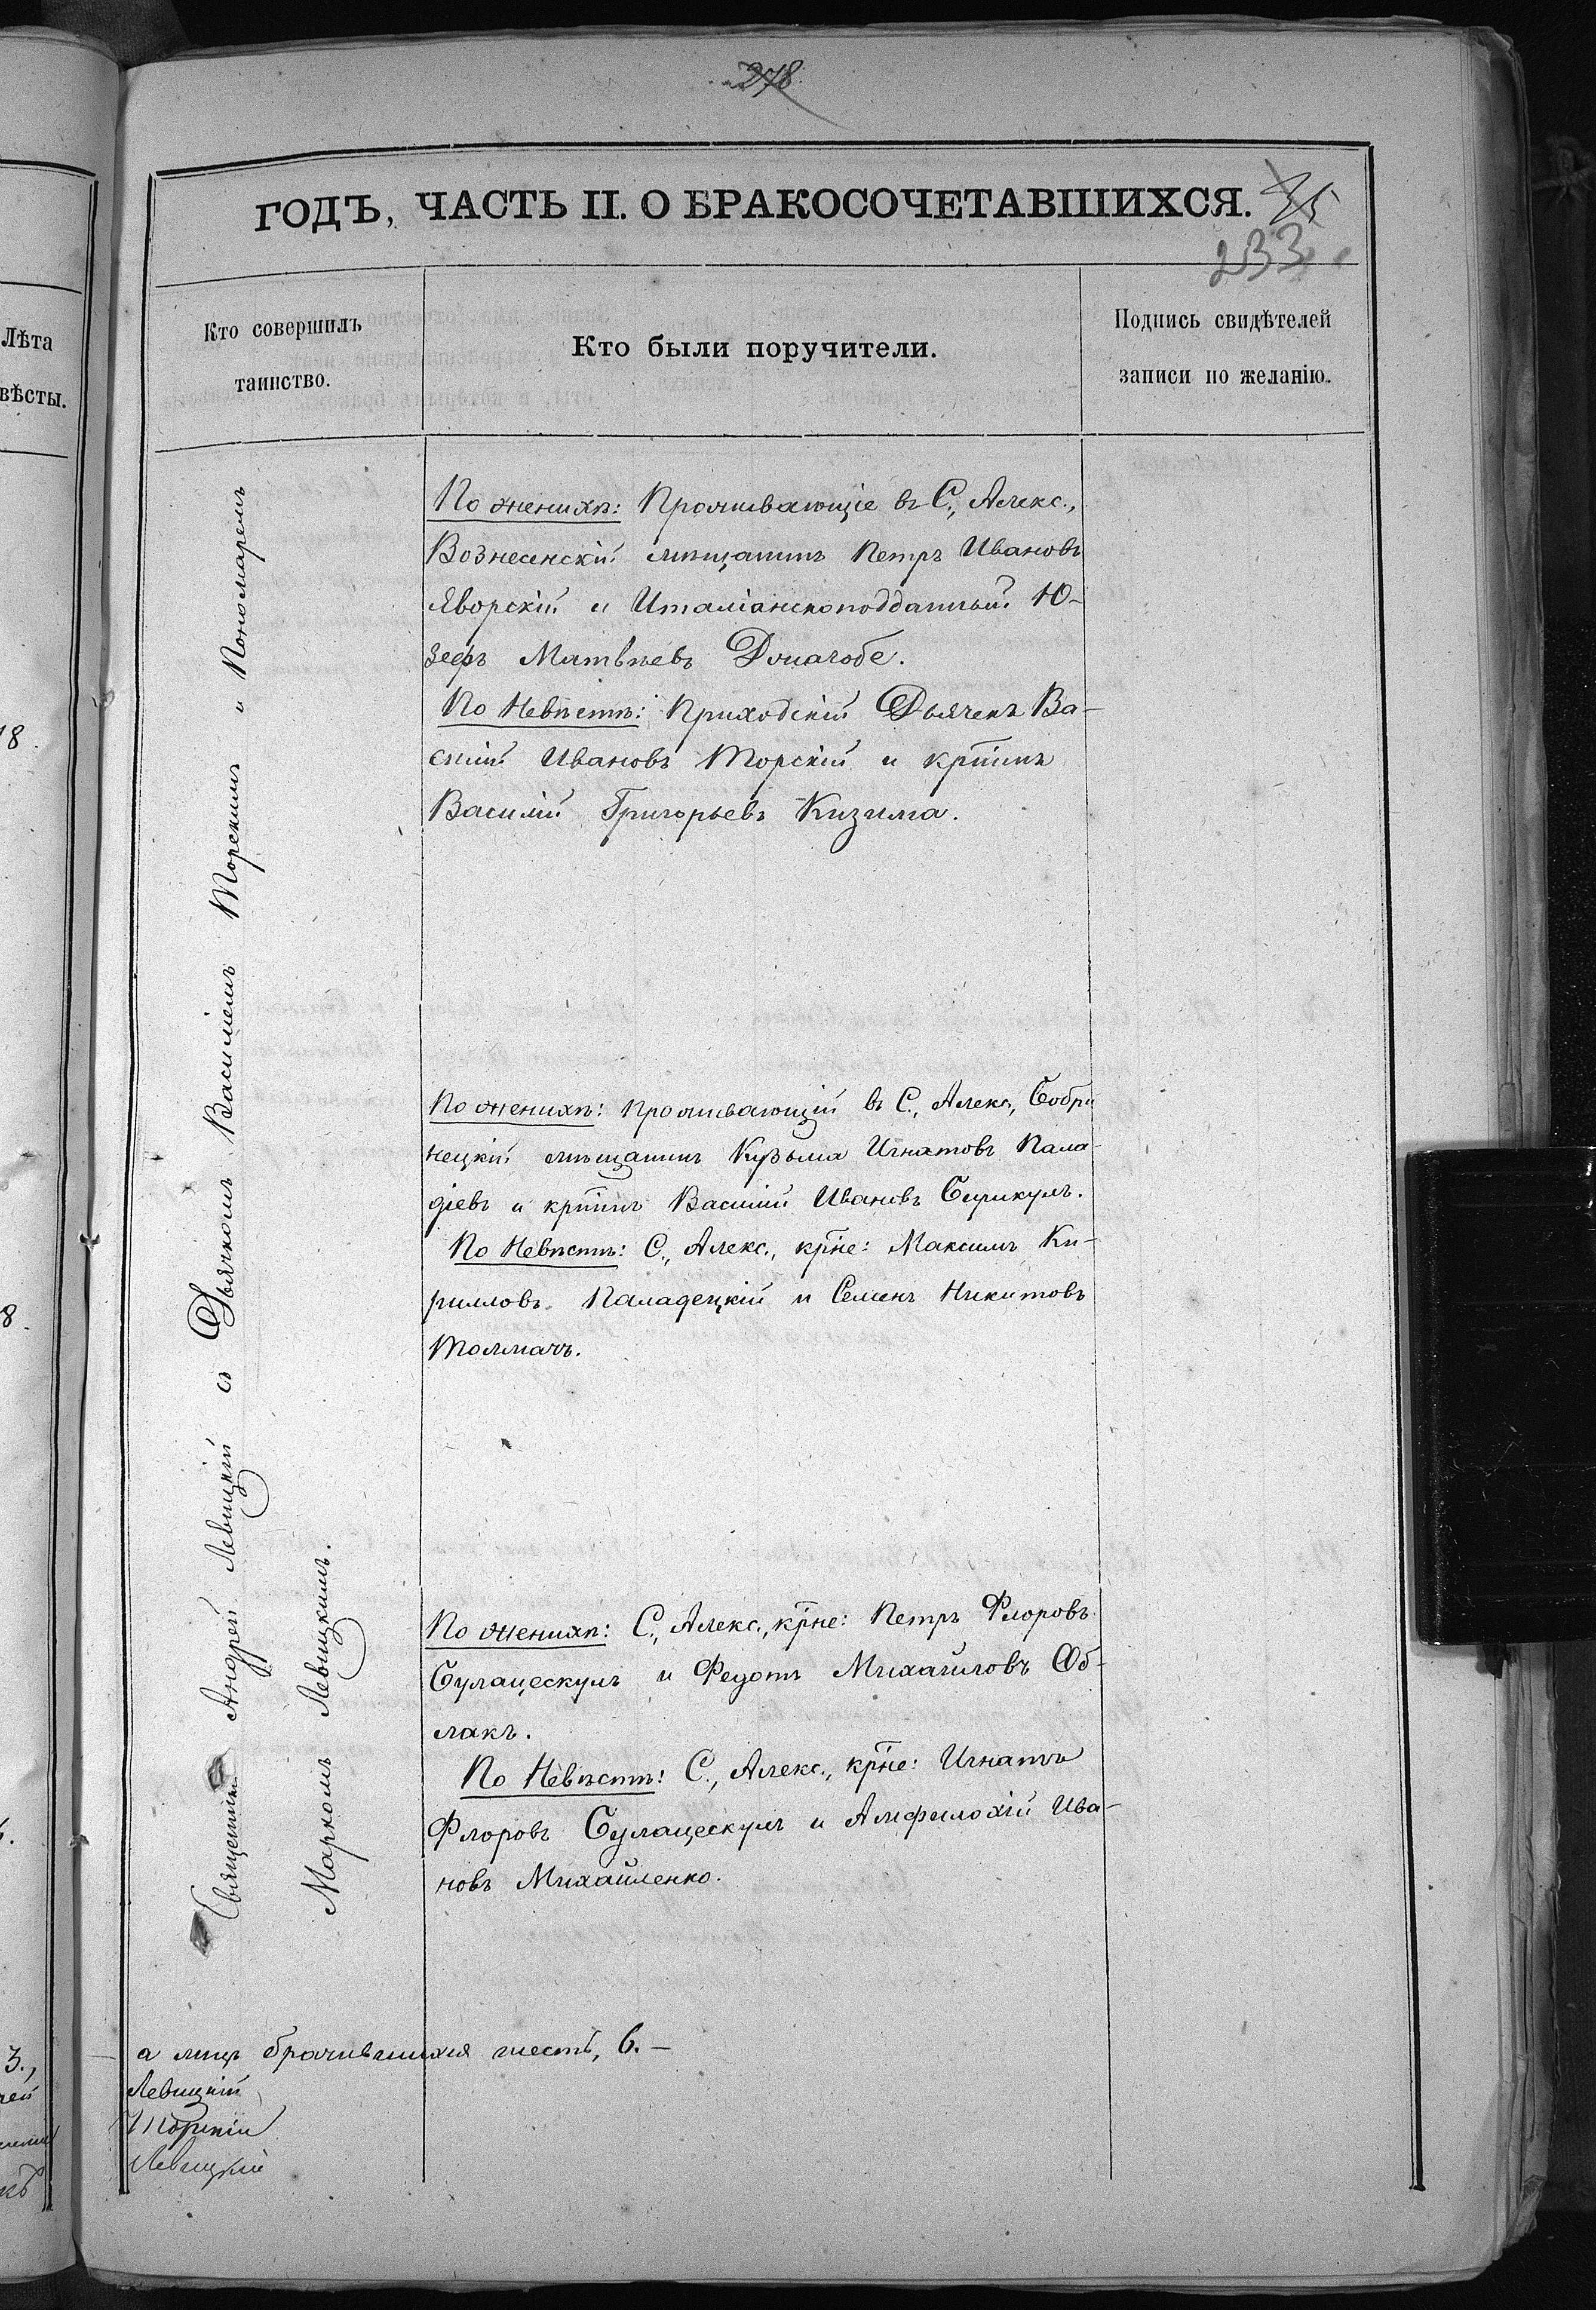 278
ГОДЪ, ЧАСТЬ II. О БРАКОСОЧЕТАВШИХСЯ.
233
Лѣта
вѣсты.
Кто совершилъ
таинство.
Кто были поручители.
Подпись свидѣтелей
записи по желанію.
18.
8.
Священникъ Андрей Левицкій съ Дьячкомъ Василіемъ Торскимъ и Пономаремъ
Маркомъ Левицкимъ.
По женихѣ: Проживающіе въ С., Алекс.,
Вознесенскій мѣщанинъ Петръ Ивановъ
Яворскій и Италіанскоподданный Ю-
зефъ Матвѣевъ
По Невѣстѣ: Приходскій Дьячекъ Ва-
силій Ивановъ Торскій и кртинъ
Василій Григорьевъ Кизима.
По женихѣ: проживающій въ С., Алекс., Бобри
нецкій мѣщанинъ Кузьма Игнатовъ Пала-
діевъ и кртинъ Василій Ивановъ
По Невѣстѣ: С., Алекс., крне: Максимъ Ки-
рилловъ Паладецкій и Семенъ Никитовъ
Толмачъ.
По женихѣ: С., Алекс., крне: Петръ Флоровъ
Булацескулъ и Федотъ Михайловъ Об-
лакъ.
По Невѣстѣ: С., Алекс., крне: Игнатъ
Флоровъ Булацескулъ и Амфилохій Ива-
новъ Михайленко.
3.,
а лицъ брачившихся шесть, 6. —
Левицкій
Торскій
Левицкій